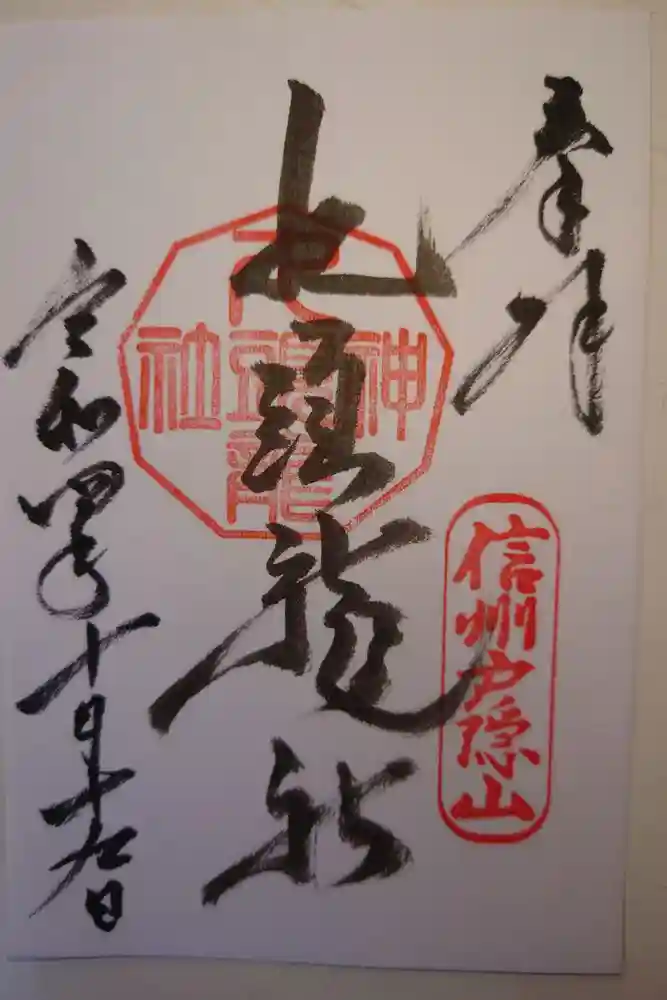 奉拝
信州戸隠山
九頭龍社
九頭龍
神社
令和四年十月十九日